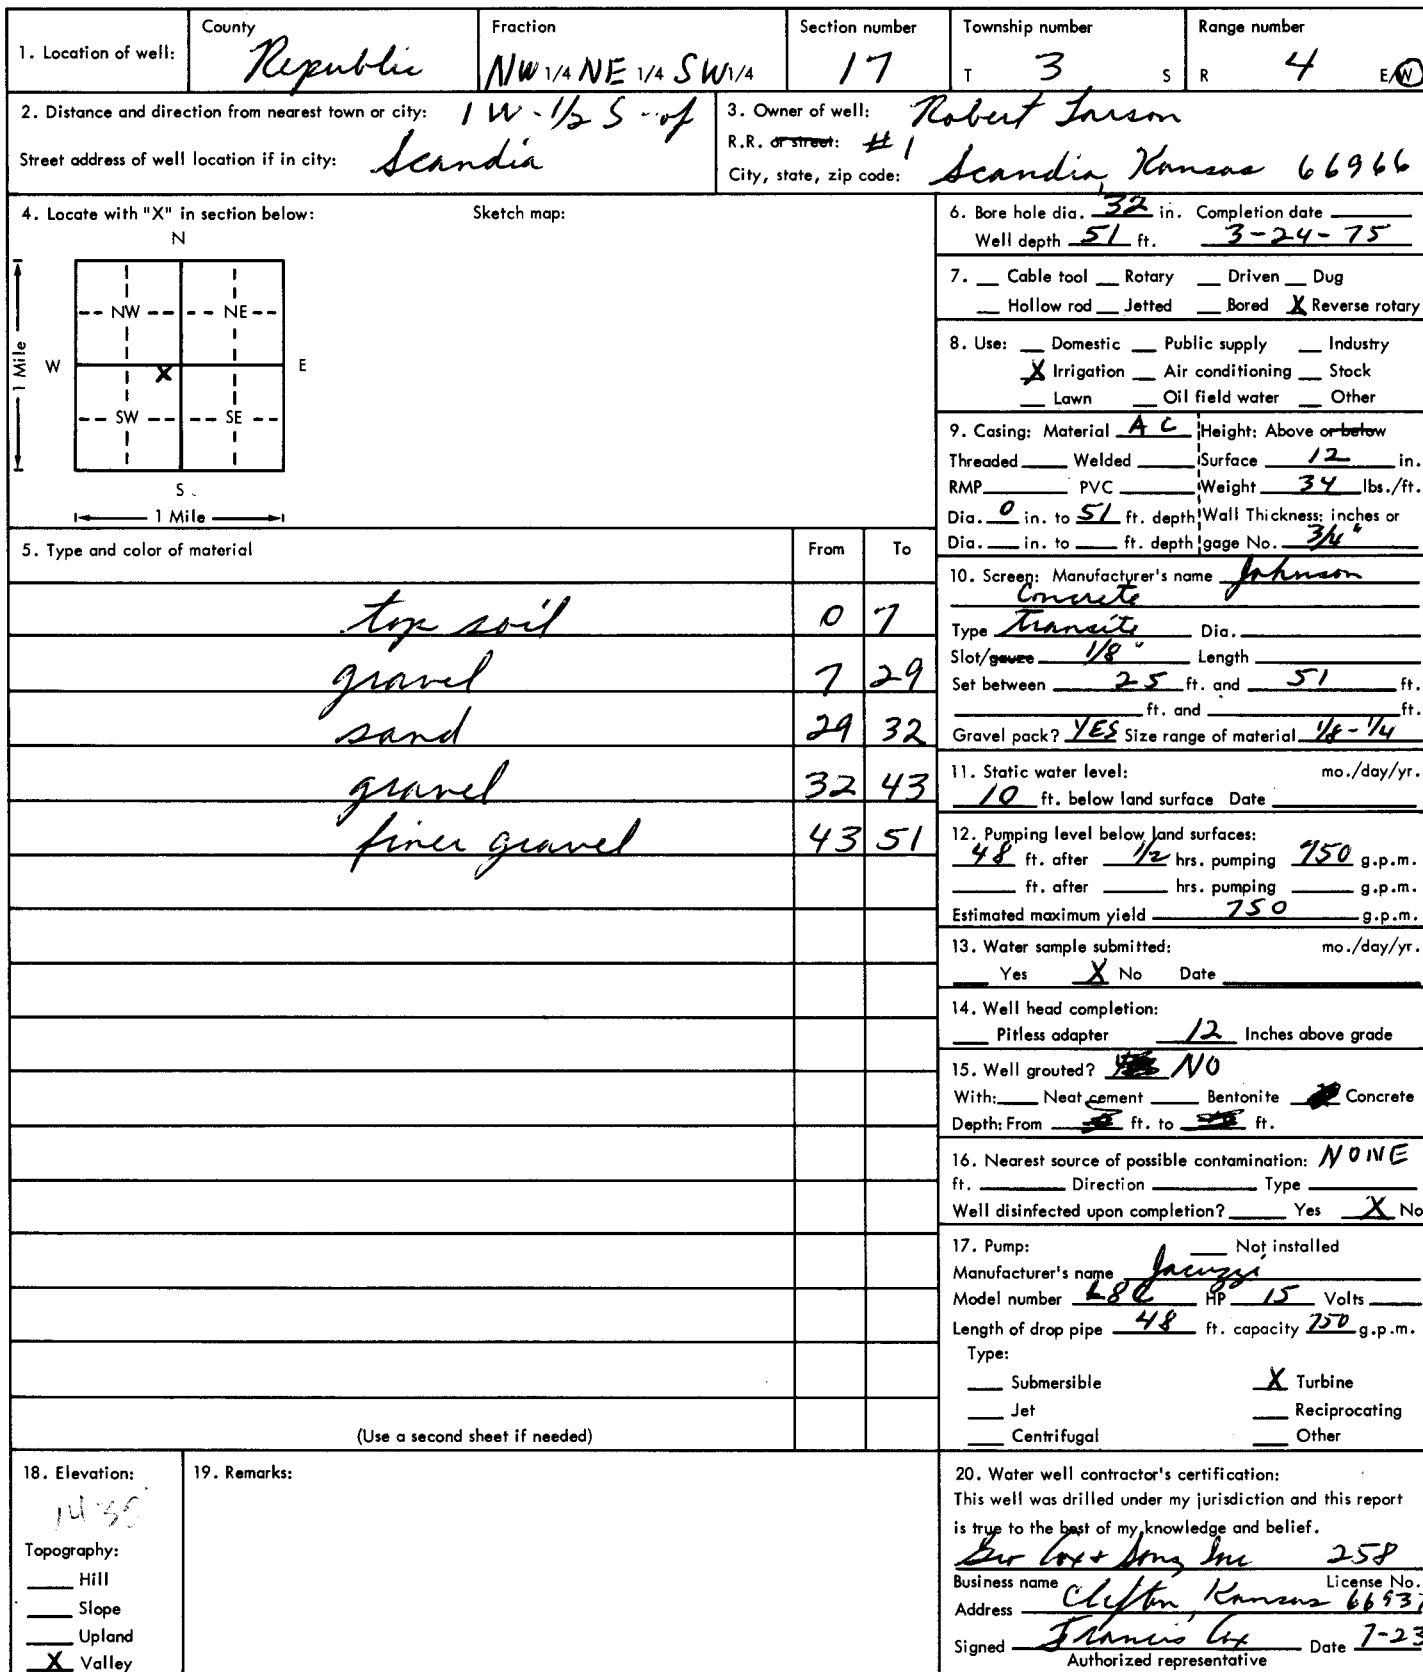 1. Location of well: County Republic Fraction NW 1/4 NE 1/4 SW 1/4 Section number 17 Township number T 3 S Range number R 4 E/W
2. Distance and direction from nearest town or city: 1 W - 1/2 S - of
Street address of well location if in city: Scandia
3. Owner of well: Robert Larson
R.R. or street: #1
City, state, zip code: Scandia, Kansas 66966
4. Locate with "X" in section below: Sketch map:
N
NW NE
W X E
SW SE
S
1 Mile
1 Mile
5. Type and color of material From To
top soil 0 7
gravel 7 29
sand 29 32
gravel 32 43
finer gravel 43 51
(Use a second sheet if needed)
6. Bore hole dia. 32 in. Completion date
Well depth 51 ft. 3-24-75
7. Cable tool Rotary Driven Dug
Hollow rod Jetted Bored X Reverse rotary
8. Use: Domestic Public supply Industry
X Irrigation Air conditioning Stock
Lawn Oil field water Other
9. Casing: Material A C Height: Above or below
Threaded Welded Surface 12 in.
RMP PVC Weight 34 lbs./ft.
Dia. 0 in. to 51 ft. depth Wall Thickness: inches or
Dia. in. to ft. depth gage No. 3/4"
10. Screen: Manufacturer's name Johnson
Concrete
Type Transite Dia.
Slot/gauze 1/8" Length
Set between 25 ft. and 51 ft.
ft. and ft.
Gravel pack? YES Size range of material 1/8 - 1/4
11. Static water level: mo./day/yr.
10 ft. below land surface Date
12. Pumping level below land surfaces:
48 ft. after 1/2 hrs. pumping 750 g.p.m.
ft. after hrs. pumping g.p.m.
Estimated maximum yield 750 g.p.m.
13. Water sample submitted: mo./day/yr.
Yes X No Date
14. Well head completion:
Pitless adapter 12 Inches above grade
15. Well grouted? NO
With: Neat cement Bentonite Concrete
Depth: From ft. to ft.
16. Nearest source of possible contamination: NONE
ft. Direction Type
Well disinfected upon completion? Yes X No
17. Pump: Not installed
Manufacturer's name Jacuzzi
Model number L8C HP 15 Volts
Length of drop pipe 48 ft. capacity 750 g.p.m.
Type:
Submersible X Turbine
Jet Reciprocating
Centrifugal Other
18. Elevation:
Topography:
Hill
Slope
Upland
X Valley
19. Remarks:
20. Water well contractor's certification:
This well was drilled under my jurisdiction and this report
is true to the best of my knowledge and belief.
Geo Cox + Sons Inc 258
Business name License No.
Address Clifton, Kansas 66937
Signed Francis Cox Date 7-23
Authorized representative